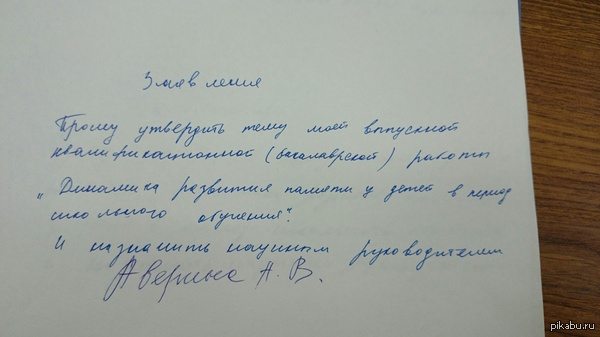 Заявления
Прошу утвердить тему моей выпускной
квалификационной (бакалаврской) работы
„Динамика развития памяти у детей в период
школьного обучения".
И назначить научным руководителем
Аверина А. В.
pikabu.ru